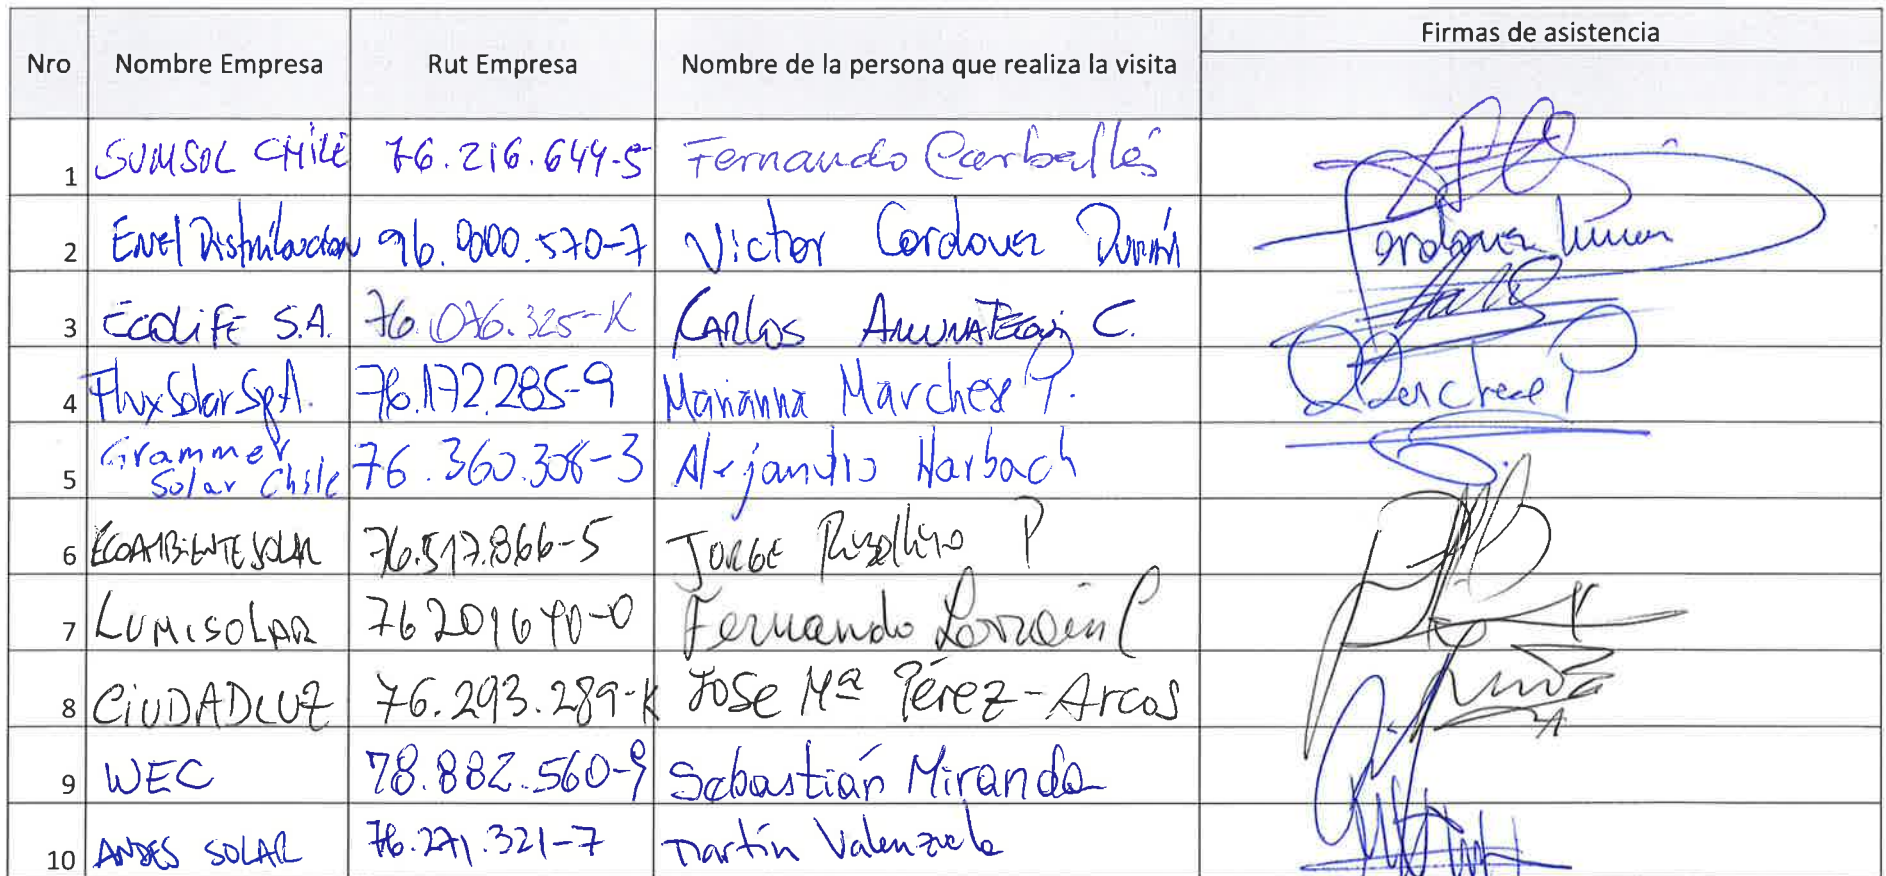 Firmas de asistencia
Nro Nombre Empresa Rut Empresa Nombre de la persona que realiza la visita
1 SUMSOL CHILE 76.216.644-5 Fernando Carballés
2 Enel Distribucion 96.800.570-7 Victor Cordover Durán
3 Ecolife S.A. 76.076.325-K Carlos Amunategui C.
4 Flux Solar SpA. 76.172.285-9 Marianna Marchese P.
5 Grammer Solar Chile 76.360.306-3 Alejandro Harbach
6 ECOAMBIENTE SOLAR 76.517.866-5 JORGE P
7 LUMISOLAR 76201640-0 Fernando Larraín C
8 CIUDADLUZ 76.293.289-K Jose Mª Pérez-Arcos
9 WEC 78.882.560-9 Sebastián Miranda
10 ANDES SOLAR 76.271.321-7 Martín Valenzuela